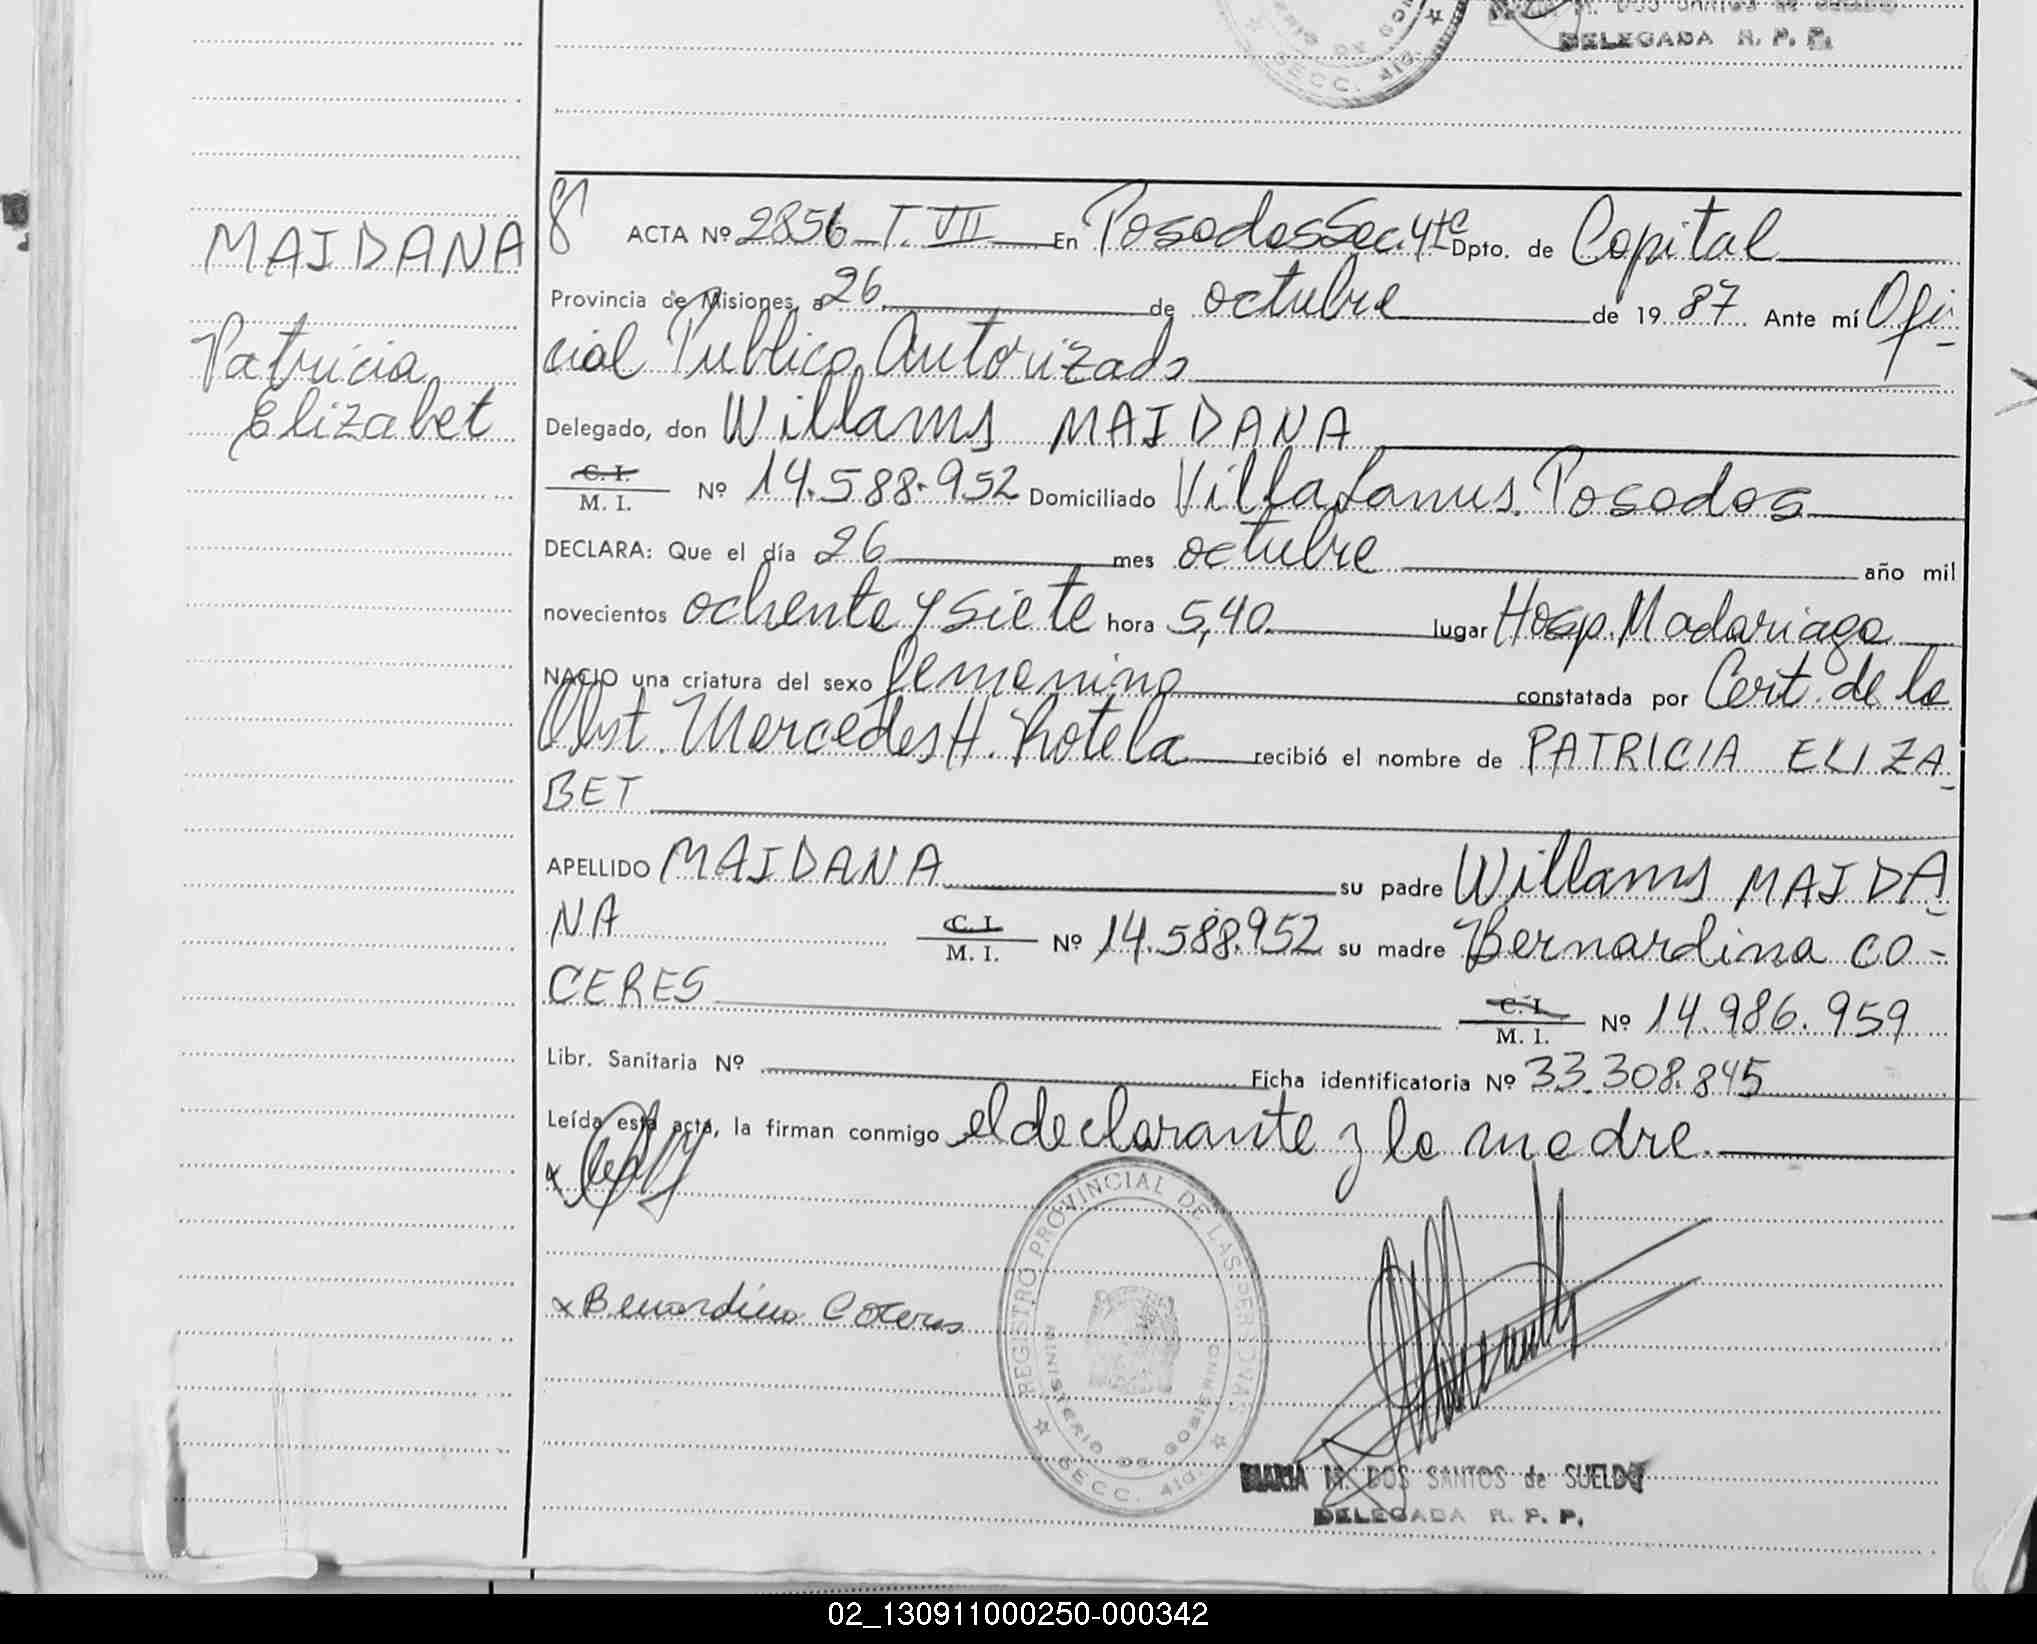 DELEGADA R. P. P.
8 ACTA Nº 2856 T. VII En Posadas Sec. 4ta Dpto. de Capital
MAIDANA
Provincia de Misiones, a 26 de octubre de 1987 Ante mí Ofi-
Patricia
cial Publico Autorizado
Elizabet
Delegado, don Willams MAIDANA
C. I.
M. I. Nº 14.588.952 Domiciliado Villa Lanus. Posadas
DECLARA: Que el día 26 mes octubre año mil
novecientos ochenta y siete hora 5,40 lugar Hosp. Madariaga
NACIO una criatura del sexo femenino constatada por Cert. de la
Obst. Mercedes H. Rotela recibió el nombre de PATRICIA ELIZA-
BET
APELLIDO MAIDANA su padre Willams MAIDA-
NA C. I. M. I. Nº 14.588.952 su madre Bernardina CO-
CERES C. I. M. I. Nº 14.986.959
Libr. Sanitaria Nº Ficha identificatoria Nº 33.308.845
Leída esta acta, la firman conmigo el declarante y la madre.
x
x Bernardina Coceres
REGISTRO PROVINCIAL DE LAS PERSONAS
MINISTERIO DE GOBIERNO
SECC. 4ta.
MARIA M. DOS SANTOS de SUELDO
DELEGADA R. P. P.
02_130911000250-000342